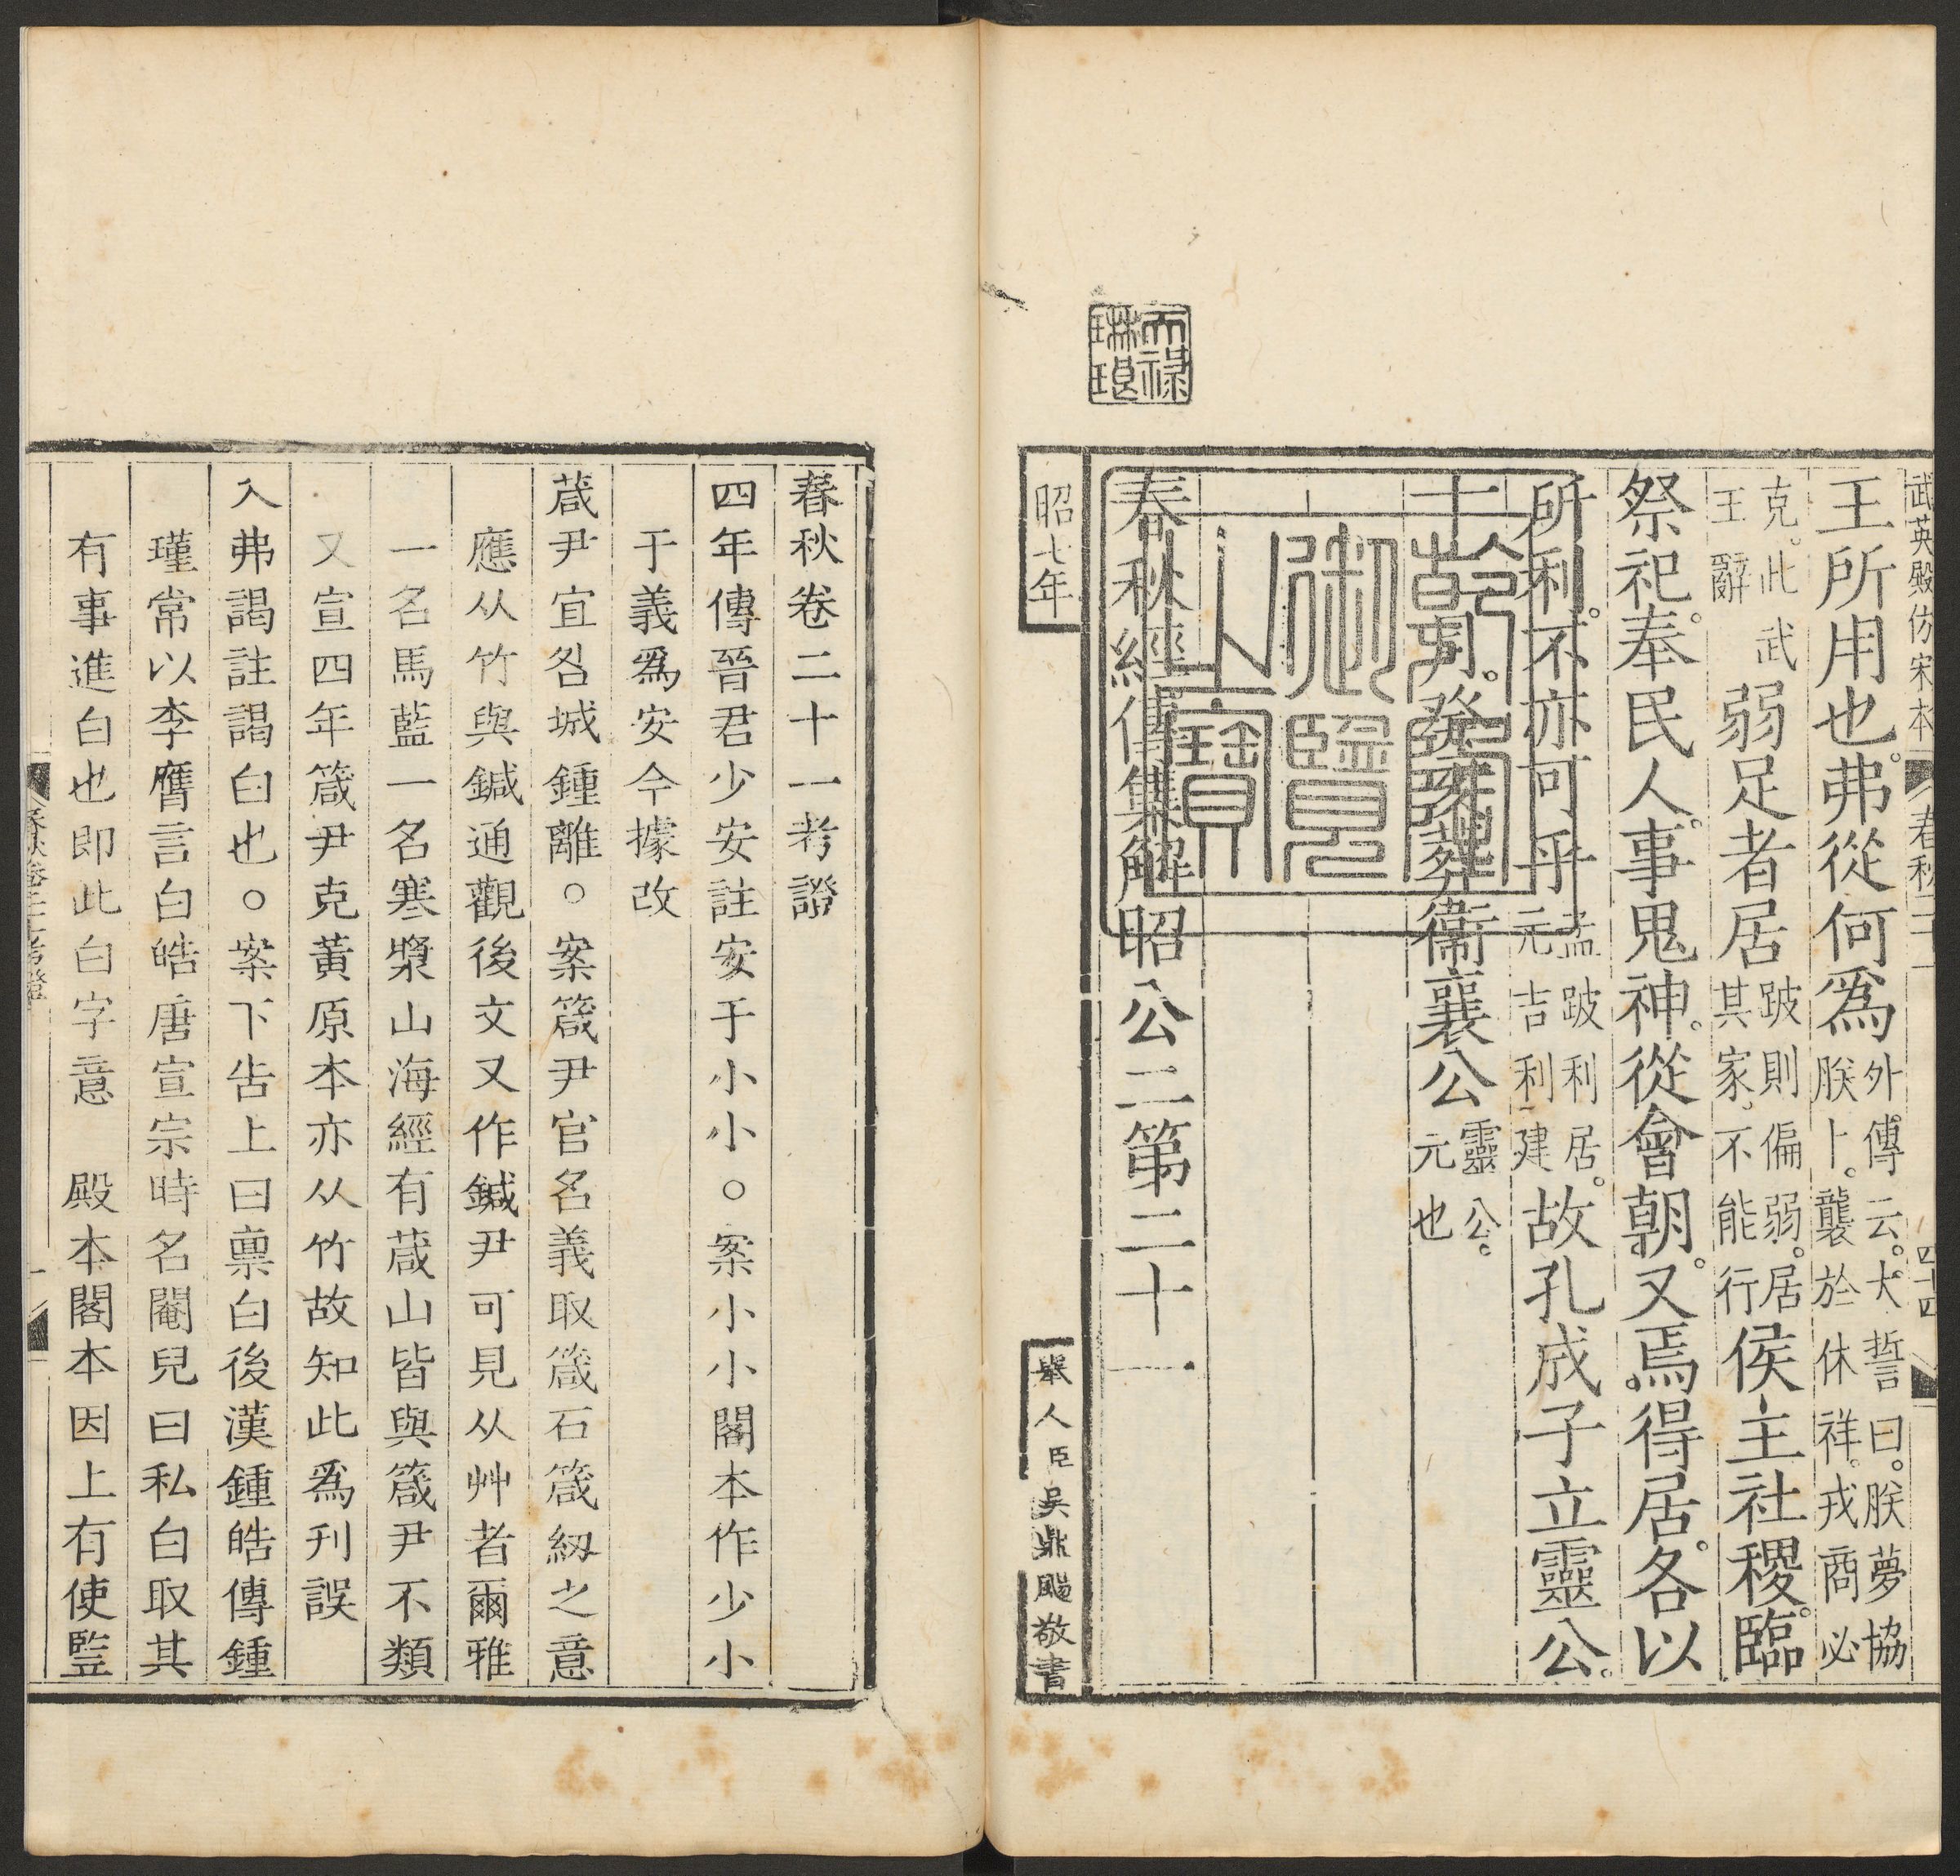 武英殿仿宋本
春秋二十一
四十四
王所用也。弗從何爲外傳云。大誓曰。朕夢協朕卜。襲於休祥。戎商必
克。此武王辭弱足者居跛則偏弱。居其家。不能行侯主社稷。臨
祭祀。奉民人。事鬼神。從會朝。又焉得居。各以
所利。不亦可乎孟跛利居。元吉利建故孔成子立靈公。
十二月。癸亥。葬衛襄公靈公。元也
春秋經傳集解昭公二第二十一
昭七年
舉人臣吳鼎颺敬書
天祿琳琅
乾隆御覽之寶
春秋卷二十一考證
四年傳晉君少安註安于小小。案小小閣本作少小
于義爲安今據改
葴尹宜咎城鍾離。案箴尹官名義取箴石箴紉之意
應从竹與鍼通觀後文又作鍼尹可見从艸者爾雅
一名馬藍一名寒漿山海經有葴山皆與箴尹不類
又宣四年箴尹克黃原本亦从竹故知此爲刊誤
入弗謁註謁白也。案下告上曰稟白後漢鍾皓傳鍾
瑾常以李膺言白皓唐宣宗時名閹兒曰私白取其
有事進白也即此白字意　殿本閣本因上有使豎